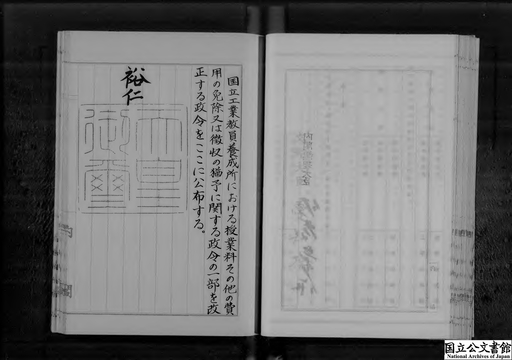 国立工業教員養成所における授業料その他の費
用の免除又は徴収の猶予に関する政令の一部を改
正する政令をここに公布する。
裕仁
天皇
御璽
国立公文書館
National Archives of Japan